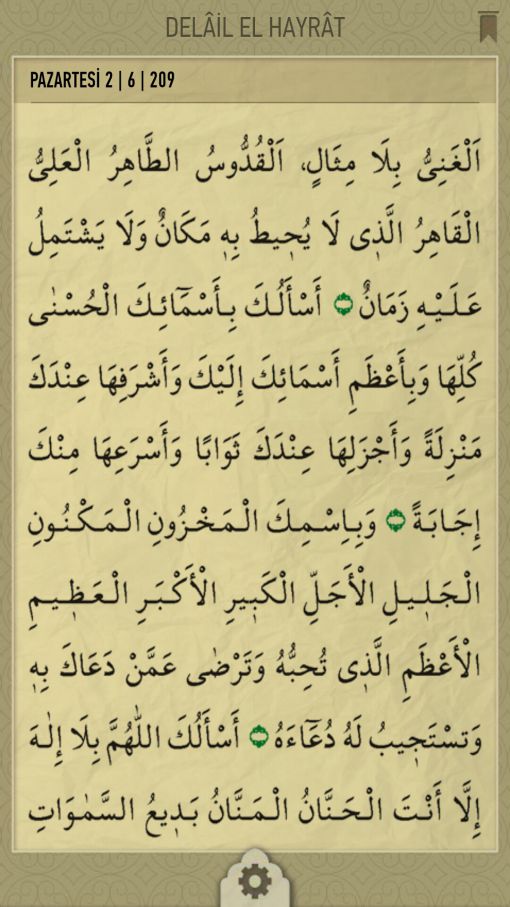 DELÂİL EL HAYRÂT
PAZARTESİ 2 | 6 | 209
اَلْغَنِىُّ بِلَا مِثَالٍ، اَلْقُدُّوسُ الطَّاهِرُ الْعَلِىُّ
الْقَاهِرُ الَّذٖى لَا يُحٖيطُ بِهٖ مَكَانٌ وَلَا يَشْتَمِلُ
عَلَيْهِ زَمَانٌ ۝ أَسْأَلُكَ بِأَسْمَٓائِكَ الْحُسْنٰى
كُلِّهَا وَبِأَعْظَمِ أَسْمَائِكَ إِلَيْكَ وَأَشْرَفِهَا عِنْدَكَ
مَنْزِلَةً وَأَجْزَلِهَا عِنْدَكَ ثَوَابًا وَأَسْرَعِهَا مِنْكَ
إِجَابَةً ۝ وَبِاِسْمِكَ الْمَخْزُونِ الْمَكْنُونِ
الْجَلٖيلِ الْأَجَلِّ الْكَبٖيرِ الْأَكْبَرِ الْعَظٖيمِ
الْأَعْظَمِ الَّذٖى تُحِبُّهُ وَتَرْضٰى عَمَّنْ دَعَاكَ بِهٖ
وَتسْتَجٖيبُ لَهُ دُعَٓاءَهُ ۝ أَسْأَلُكَ اللّٰهُمَّ بِلَا إِلٰهَ
إِلَّا أَنْتَ الْحَنَّانُ الْمَنَّانُ بَدٖيعُ السَّمٰوَاتِ